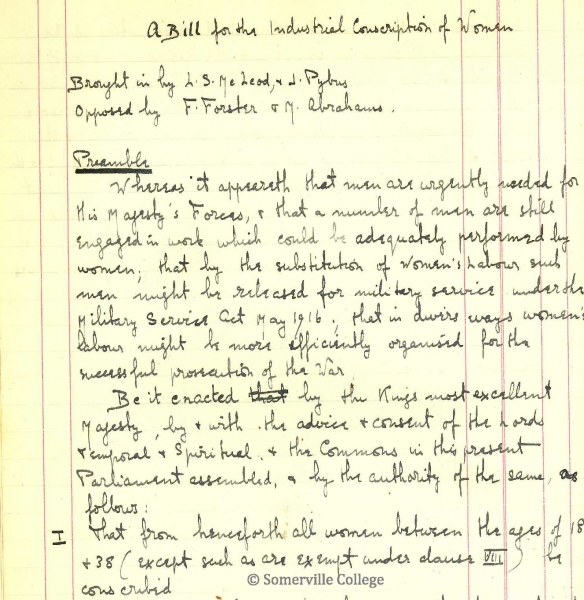 A Bill for the Industrial Conscription of Women
Brought in by L. S. McLeod, & J. Pybus
Opposed by F. Forster & M. Abrahams.
Preamble
Whereas it appeareth that men are urgently needed for
His Majesty's Forces, & that a number of men are still
engaged in work which could be adequately performed by
women; that by the substitution of Women's Labour such
men might be released for military service under the
Military Service Act May 1916; that in divers ways women's
labour might be more efficiently organised for the
successful prosecution of the War
Be it enacted that by the Kings most excellent
Majesty, by & with the advice & consent of the Lords
Temporal & Spiritual, & the Commons in this present
Parliament assembled, & by the authority of the same, as
follows:
I That from henceforth all women between the ages of 18
& 38 (except such as are exempt under clause VIII) be
conscribed
© Somerville College